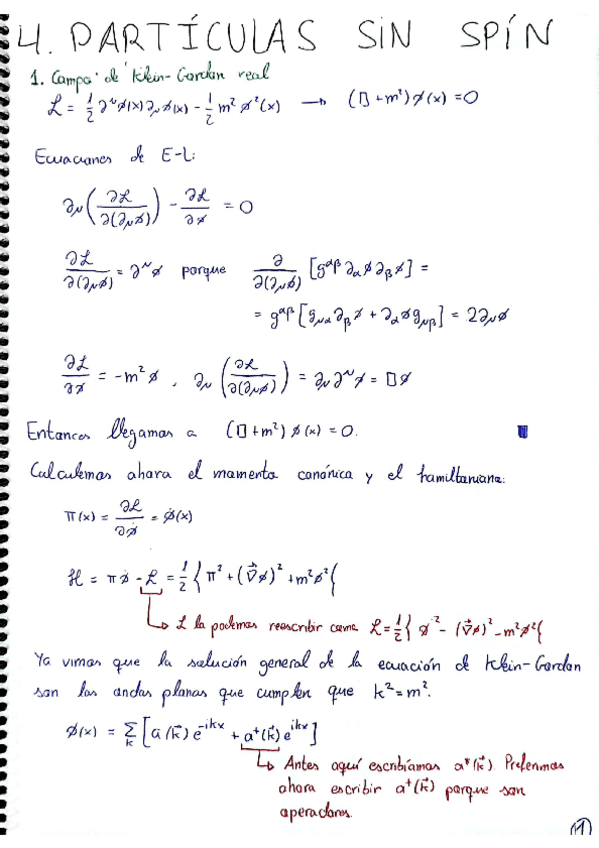 4. PARTÍCULAS SIN SPÍN
1. Campo de Klein-Gordon real
ℒ = 1/2 ∂^μ φ(x) ∂_μ φ(x) - 1/2 m² φ²(x) → (□ + m²) φ(x) = 0
Ecuaciones de E-L:
∂_μ (∂ℒ/∂(∂_μ φ)) - ∂ℒ/∂φ = 0
∂ℒ/∂(∂_μ φ) = ∂^μ φ porque ∂/∂(∂_μ φ) [g^{αβ} ∂_α φ ∂_β φ] =
= g^{αβ} [g_{μα} ∂_β φ + ∂_α φ g_{μβ}] = 2∂_μ φ
∂ℒ/∂φ = -m² φ , ∂_μ (∂ℒ/∂(∂_μ φ)) = ∂_μ ∂^μ φ = □φ
Entonces llegamos a (□ + m²) φ(x) = 0.
Calculemos ahora el momento canónico y el hamiltoniano:
π(x) = ∂ℒ/∂φ̇ = φ̇(x)
ℋ = πφ̇ - ℒ = 1/2 { π² + (∇⃗φ)² + m²φ² {
↳ ℒ la podemos reescribir como ℒ = 1/2 { φ̇² - (∇⃗φ)² - m²φ² {
Ya vimos que la solución general de la ecuación de Klein-Gordon
son las ondas planas que cumplen que k² = m².
φ(x) = Σ_k [a(k⃗) e^{-ikx} + a⁺(k⃗) e^{ikx}]
↳ Antes aquí escribíamos a*(k⃗). Preferimos
ahora escribir a⁺(k⃗) porque son
operadores.
(1)